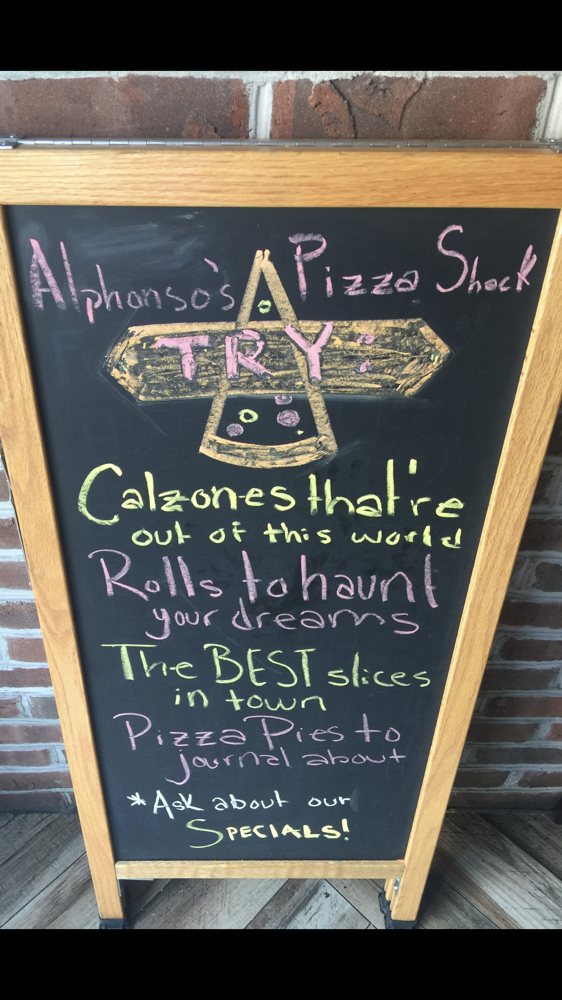 Alphonso's Pizza Shack
TRY:
Calzones that're
out of this world
Rolls to haunt
your dreams
The BEST slices
in town
Pizza Pies to
journal about
*Ask about our
SPECIALS!